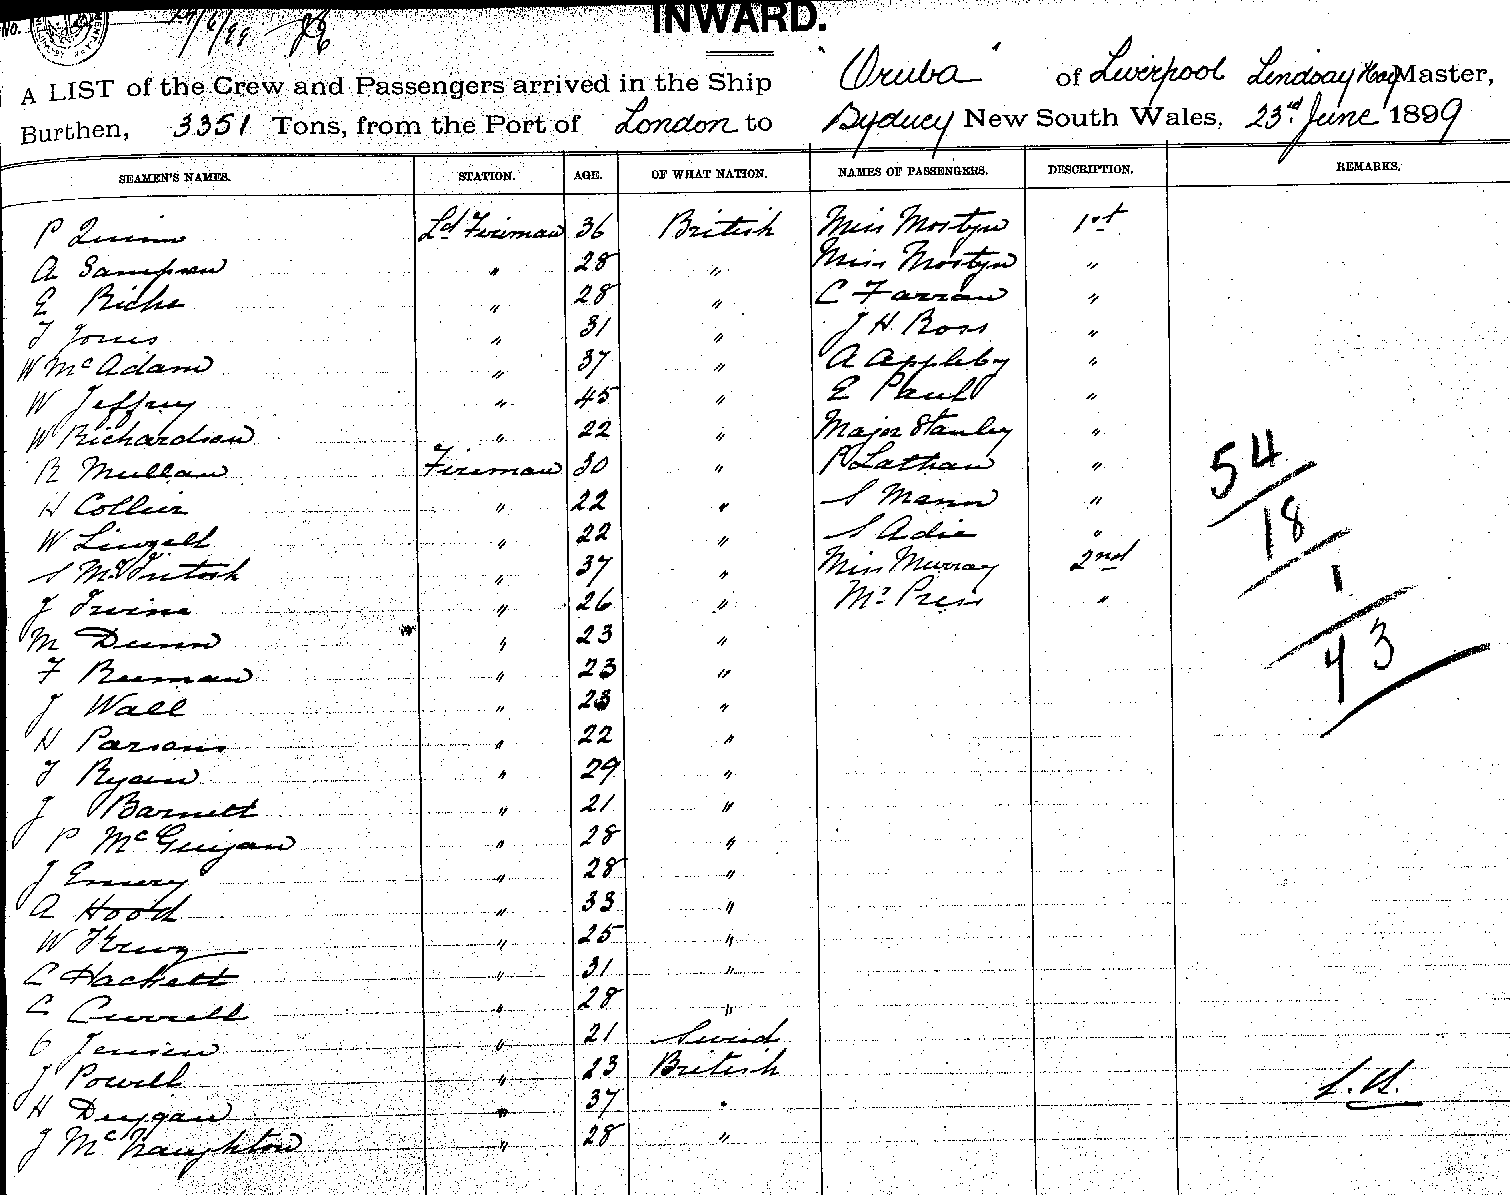 No. 24/6/99
INWARD.
A LIST of the Crew and Passengers arrived in the Ship "Oruba" of Liverpool Lindsay Master,
Burthen, 3351 Tons, from the Port of London to Sydney New South Wales, 23rd June 1899
SEAMEN'S NAMES. STATION. AGE. OF WHAT NATION. NAMES OF PASSENGERS. DESCRIPTION. REMARKS.
P Quinn Ld Fireman 36 British Miss Mostyn 1st
A Sampson " 28 " Miss Mostyn "
E Riche " 28 " C Farran "
T Jones " 31 " J H Ross "
W McAdam " 37 " A Appleby "
W Jeffrey " 45 " E Paul "
W Richardson " 22 " Major Stanley "
R Mullan Fireman 30 " P Lathan "
H Collier " 22 " S Mann "
W " 22 " S Adie "
S McIntosh " 37 " Miss Murray 2nd
J Irvine " 26 " Mr Press "
M Dunn " 23 "
F " 23 "
J Wall " 23 "
H Parsons " 22 "
T Ryan " 29 "
J Barnett " 21 "
P McGuigan " 28 "
J Emery " 28 "
A Hood " 33 "
W " 25 "
C Hackett " 31 "
C Currell " 28 "
C Jensen " 21 Swed
J Powell " 23 British
H Duggan " 37 "
J McNaughton " 28 "
54
18
1
43
L.H.